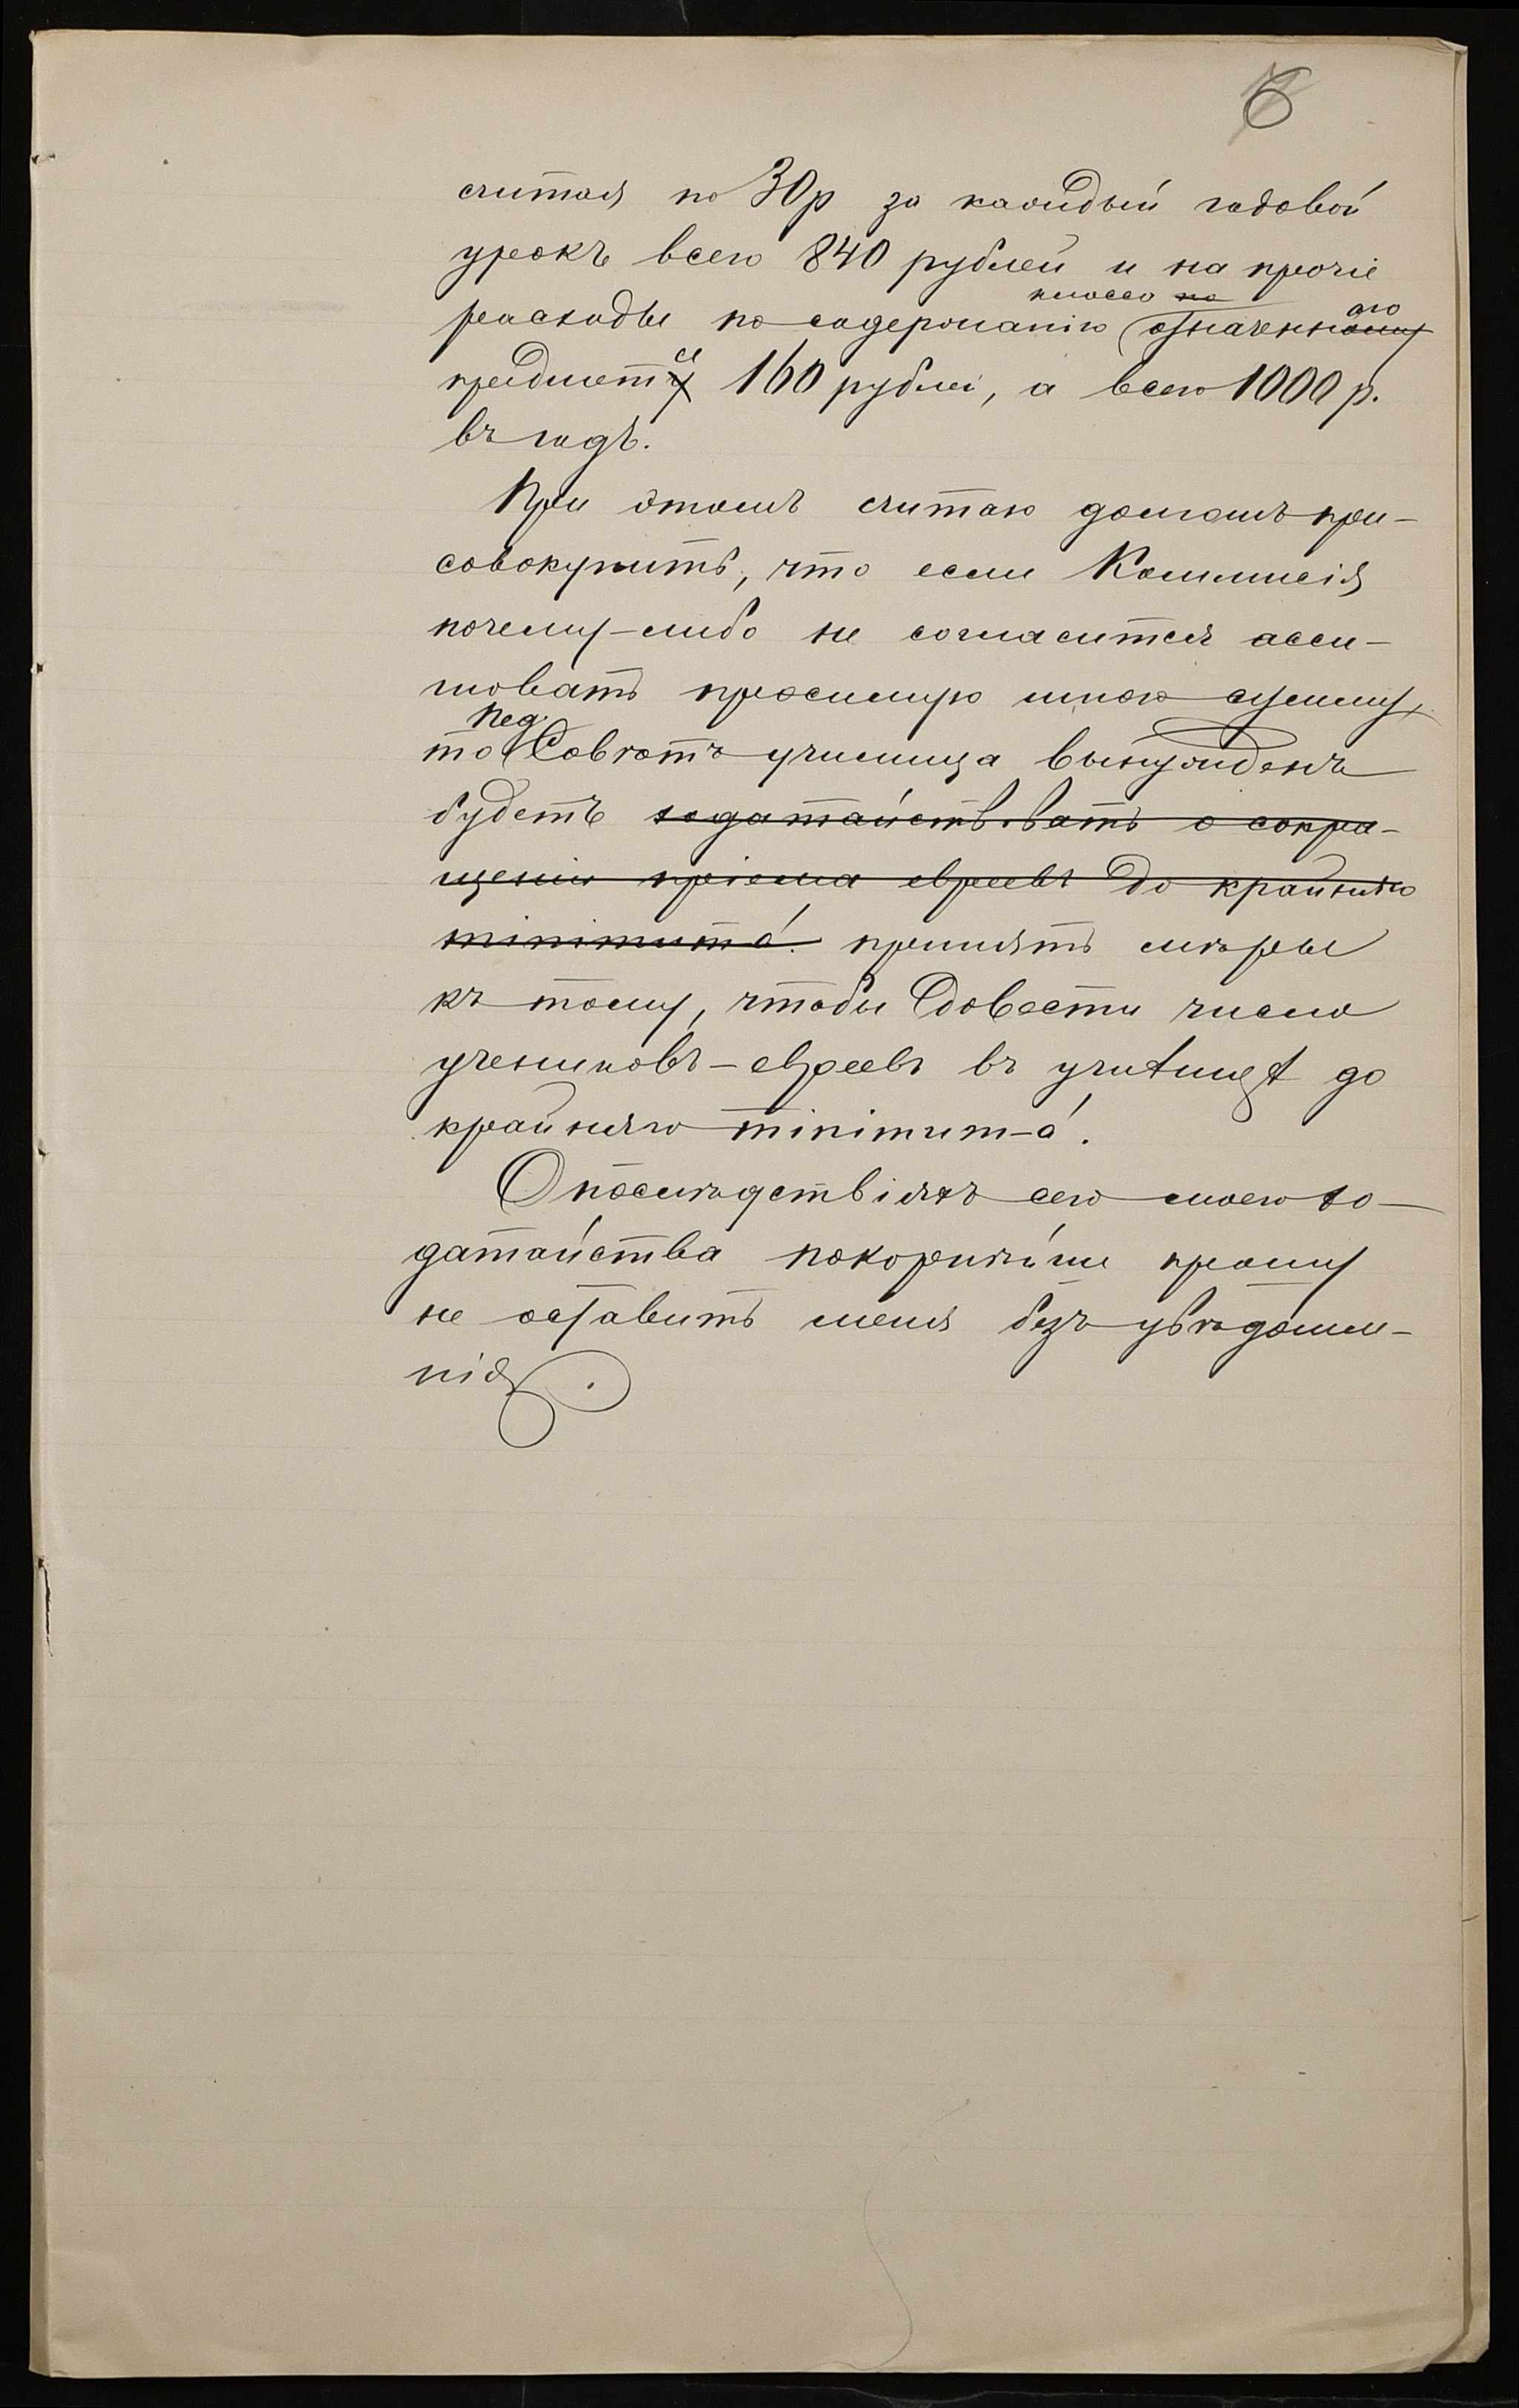 6
считая по 30р за каждый годовой
урокъ всего 840 рублей и на прочіе
класса по
расходы по содержанію означенному
аго
предмету а 160 рублей, а всего 1000 р.
въ годъ.
При этомъ считаю долгомъ при-
совокупить, что если Коммисія
почему-либо не согласится асси-
гновать просимую мною сумму,
пед.
то Совѣтъ училища вынужденъ
будетъ ходатайствовать о сокра-
щеніи пріема евреевъ до крайняго
minimum'а. принять мѣры
къ тому, чтобы довести число
учениковъ-евреевъ въ училищѣ до
крайняго minimum-а'.
О послѣдствіяхъ сего моего хо-
датайства покорнѣйше прошу
не оставить меня безъ увѣдомле-
нія.